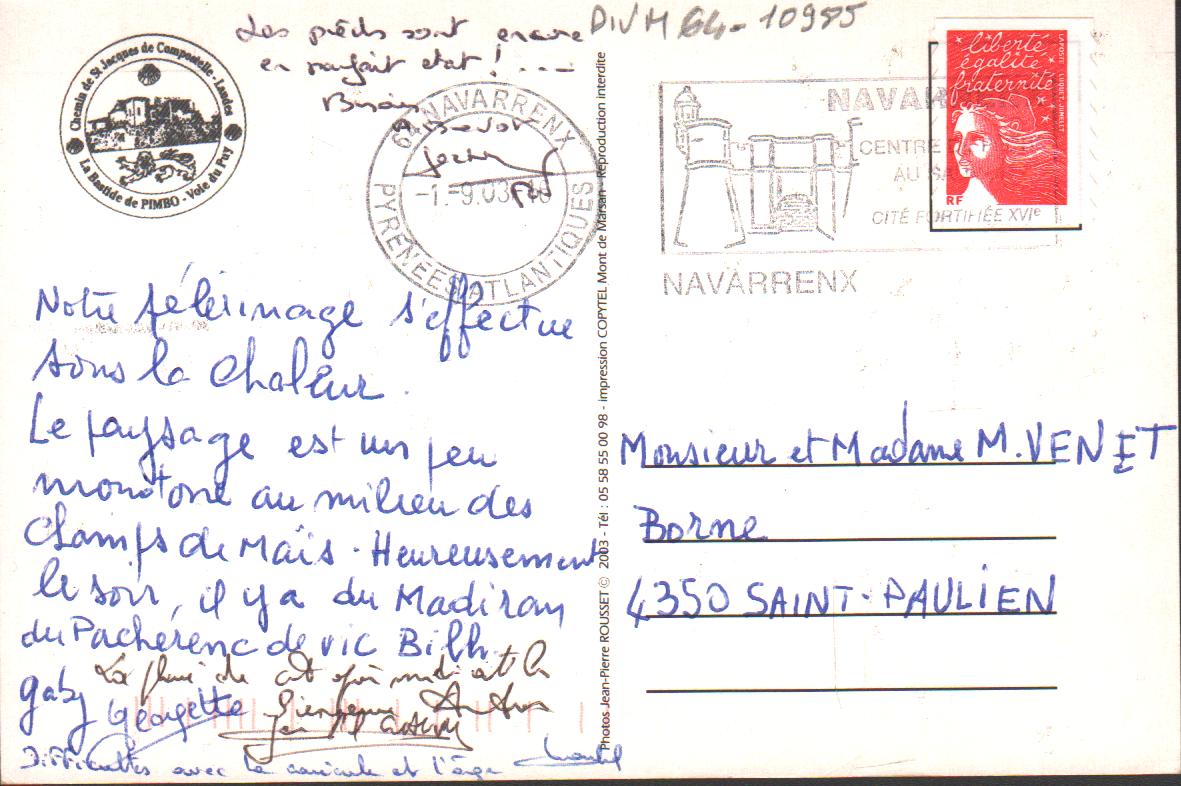 Les pieds sont encore
en parfait état ! ....
DIVM 64-10985
Chemin de St Jacques de Compostelle - Landes
La Bastide de PIMBO - Voie du Puy
64 NAVARRENX
-1.-9.03
PYRENEES ATLANTIQUES
NAVAR
CENTRE
AU
CITÉ FORTIFIÉE XVIe
NAVARRENX
liberté
égalité
fraternité
RF
LA POSTE LUQUET-JUMELET
Notre pélerinage s'effectue
sous la chaleur.
Le paysage est un peu
monotone au milieu des
champs de Maïs. Heureusement
le soir, il y a du Madiran
du Pacherenc de vic Bilh.
La pluie de cet après midi est la
bienvenue
gaby Georgette
Difficultés avec la canicule et l'âge
Photos Jean-Pierre ROUSSET © 2003 - Tél : 05 58 55 00 98 - impression COPYTEL Mont de Marsan - Reproduction interdite
Monsieur et Madame M. VENET
Borne
4350 SAINT-PAULIEN